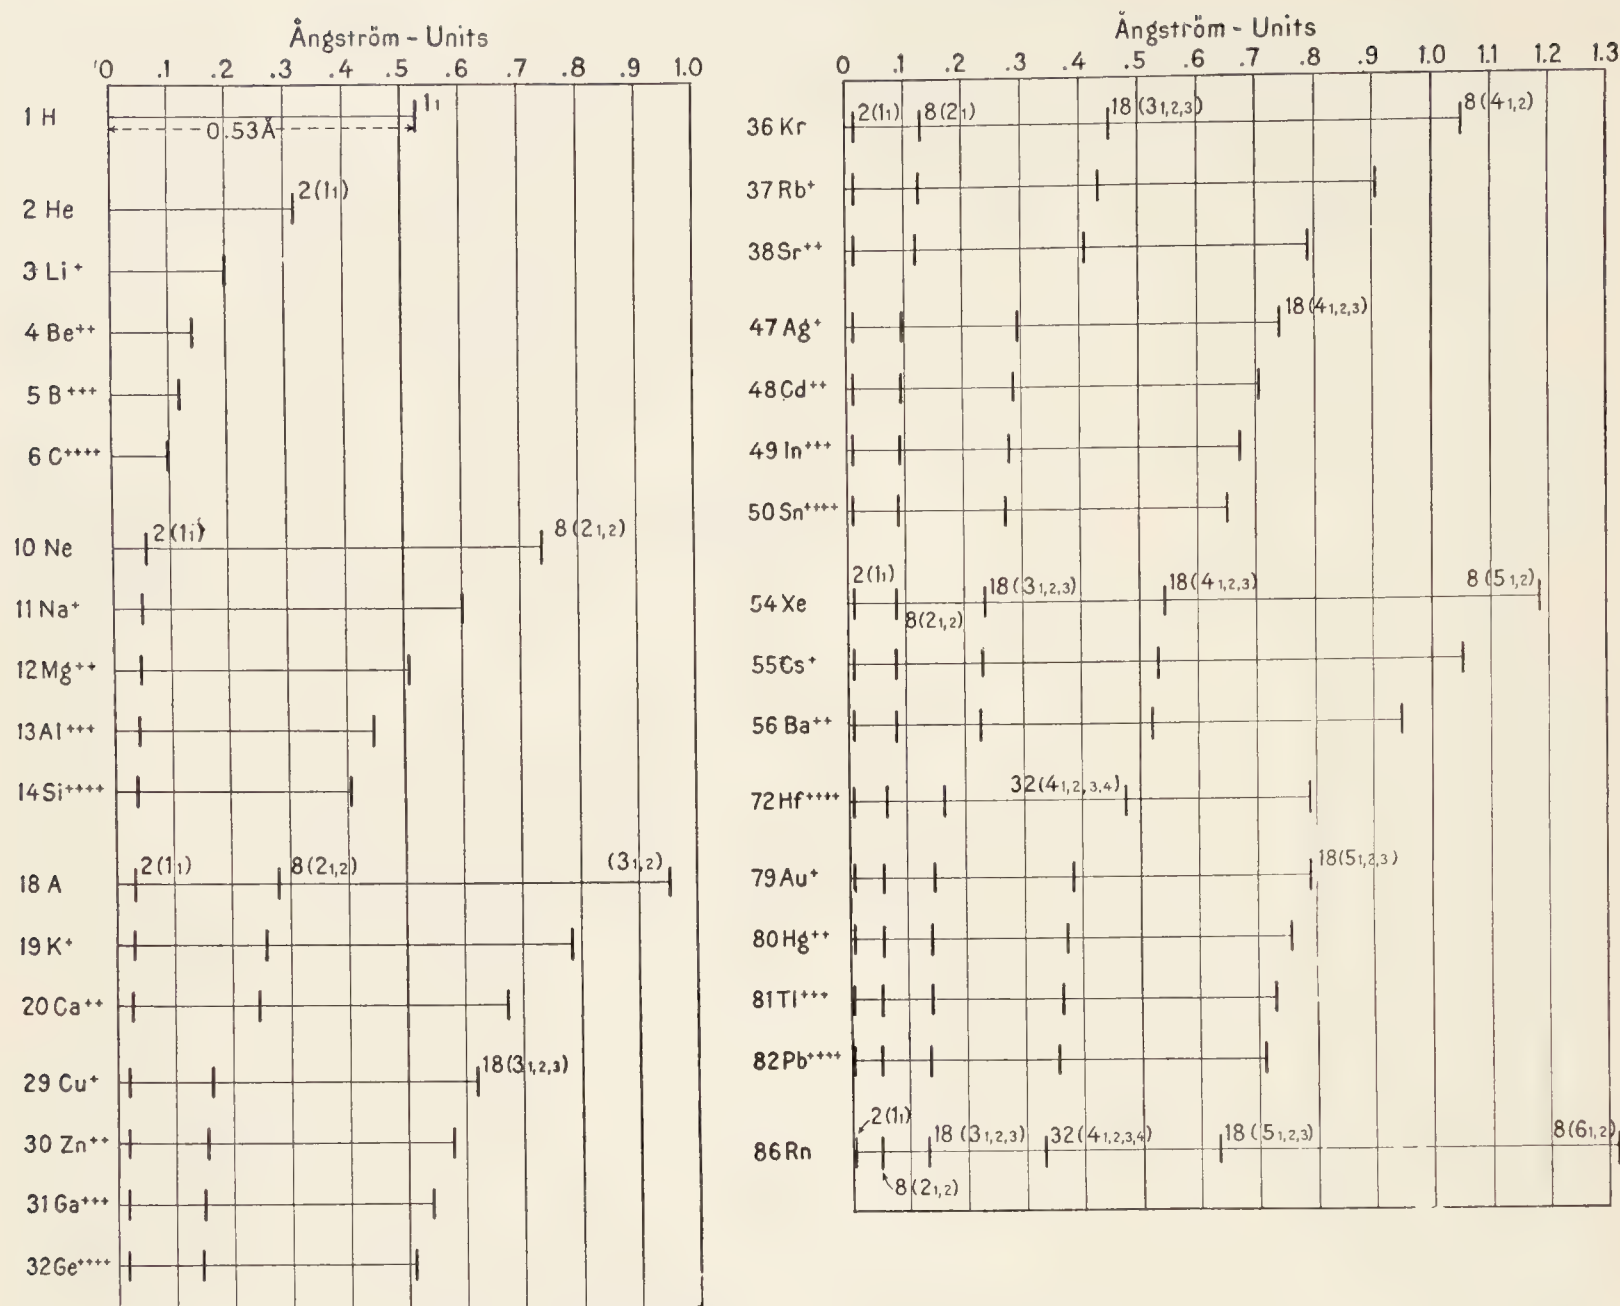 Ångström - Units
0 .1 .2 .3 .4 .5 .6 .7 .8 .9 1.0
1 H 1₁
0.53Å
2 He 2(1₁)
3 Li⁺
4 Be⁺⁺
5 B⁺⁺⁺
6 C⁺⁺⁺⁺
10 Ne 2(1₁) 8(2₁,₂)
11 Na⁺
12 Mg⁺⁺
13 Al⁺⁺⁺
14 Si⁺⁺⁺⁺
18 A 2(1₁) 8(2₁,₂) (3₁,₂)
19 K⁺
20 Ca⁺⁺
29 Cu⁺ 18(3₁,₂,₃)
30 Zn⁺⁺
31 Ga⁺⁺⁺
32 Ge⁺⁺⁺⁺
Ångström - Units
0 .1 .2 .3 .4 .5 .6 .7 .8 .9 1.0 1.1 1.2 1.3
36 Kr 2(1₁) 8(2₁) 18(3₁,₂,₃) 8(4₁,₂)
37 Rb⁺
38 Sr⁺⁺
47 Ag⁺ 18(4₁,₂,₃)
48 Cd⁺⁺
49 In⁺⁺⁺
50 Sn⁺⁺⁺⁺
54 Xe 2(1₁) 8(2₁,₂) 18(3₁,₂,₃) 18(4₁,₂,₃) 8(5₁,₂)
55 Cs⁺
56 Ba⁺⁺
72 Hf⁺⁺⁺⁺ 32(4₁,₂,₃,₄)
79 Au⁺ 18(5₁,₂,₃)
80 Hg⁺⁺
81 Tl⁺⁺⁺
82 Pb⁺⁺⁺⁺
86 Rn 2(1₁) 8(2₁,₂) 18(3₁,₂,₃) 32(4₁,₂,₃,₄) 18(5₁,₂,₃) 8(6₁,₂)